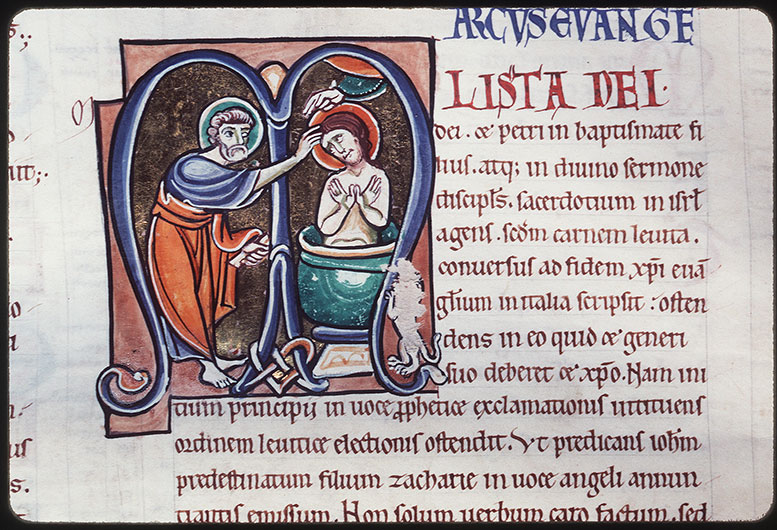 ARCVS EVANGE
LISTA DEI.
dei. & petri in baptismate fi
lius. atq; in diuino sermone
discipls. sacerdotium in isrl
agens. scdm carnem leuita.
conuersus ad fidem xpi euā
glium in italia scripsit: osten
dens in eo quid & generi
suo deberet & xpo. Nam ini
tium principii in uoce ꝓphetice exclamationis instituens
ordinem leuitice electionis ostendit. Vt predicans iohm
predestinatum filium zacharie in uoce angeli annun
tiantis emissum. Non solum uerbum caro factum. sed